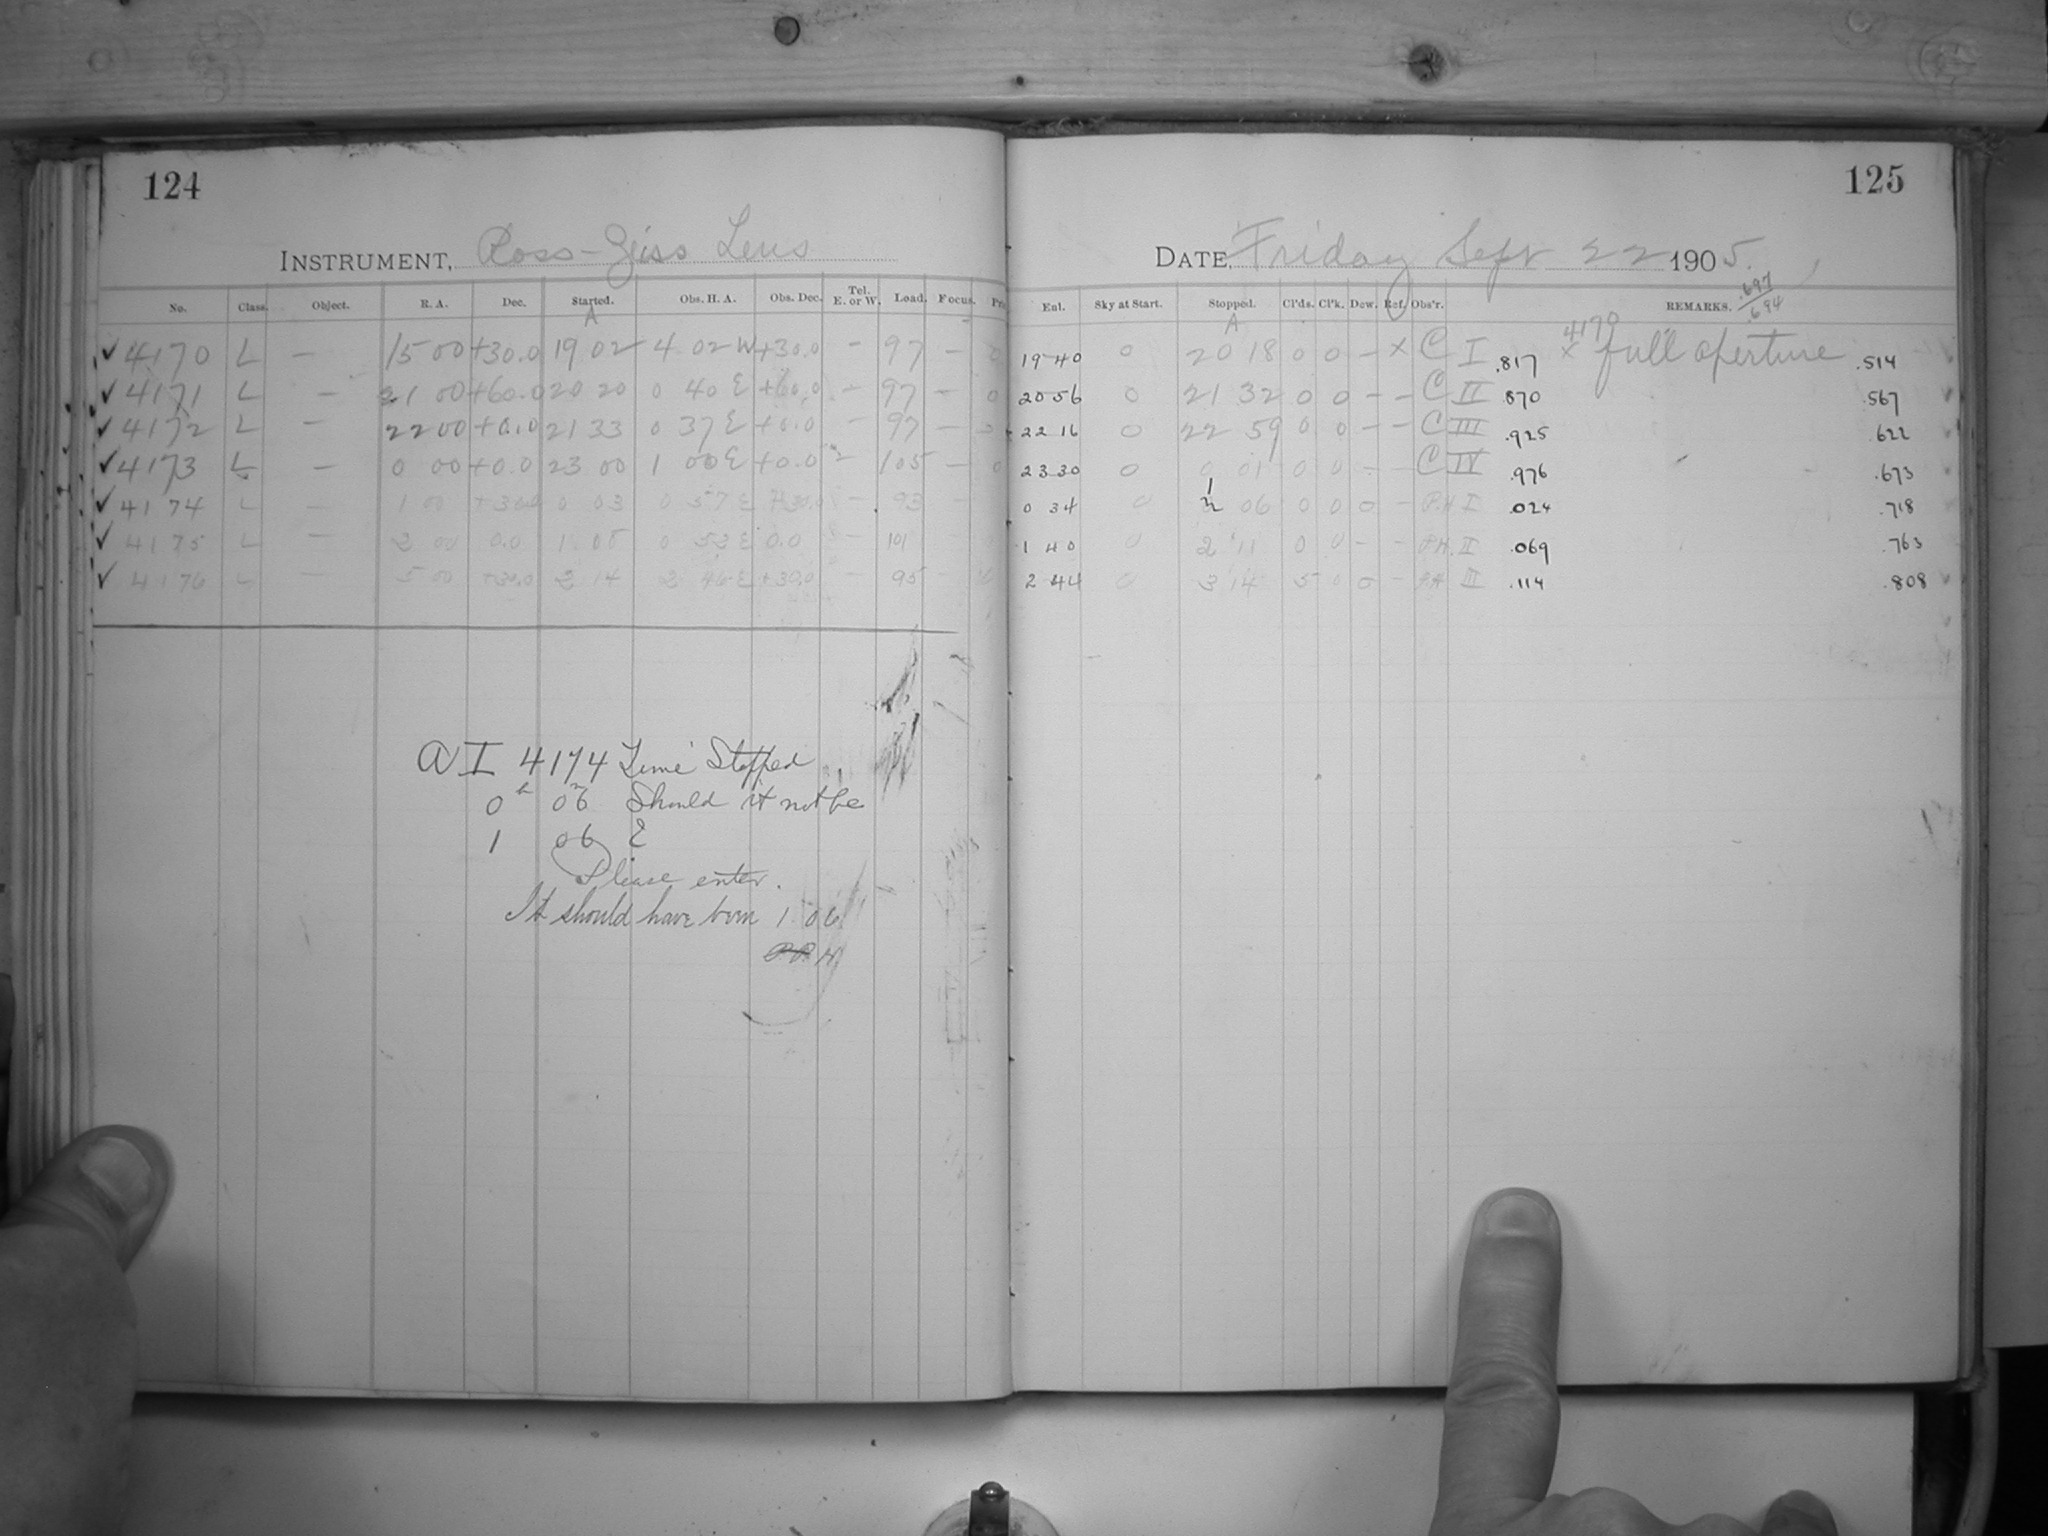 124
INSTRUMENT, Ross-Zeiss Lens
No. Class. Object. R. A. Dec. Started. Obs. H. A. Obs. Dec. Tel. E. or W. Load. Focus.
A
✓ 4170 L — 15 00 +30.0 19 02 4 02 W +30.0 — 97 —
✓ 4171 L — 21 00 +60.0 20 20 0 40 E +60.0 — 97 — 0
✓ 4172 L — 22 00 +0.0 21 33 0 37 E +0.0 — 97 —
✓ 4173 L — 0 00 +0.0 23 00 1 00 E +0.0 — 105 — 0
✓ 4174 L — 1 00 +30.0 0 03 0 57 E +30.0 — 93
✓ 4175 L — 2 00 0.0 1 08 0 52 E 0.0 — 101
✓ 4176 L — 5 00 +30.0 2 14 2 46 E +30.0 — 95 —
I 4174 Time Stopped
0h 06m Should it not be
1 06
Please enter.
It should have been 1 06
125
DATE, Friday Sept 22 1905.
Enl. Sky at Start. Stopped. Cl'ds. Cl'k. Dew. Ref. Obs'r. REMARKS. .697 / .694
A
19 40 0 20 18 0 0 — × C I .817 4170 × full aperture .514
20 56 0 21 32 0 0 — — C II .870 .567
22 16 0 22 59 0 0 — — C III .925 .622
23 30 0 0 01 0 0 — — C IV .976 .673
0 34 0 1 06 0 0 0 — I .024 .718
1 40 0 2 11 0 0 — — II .069 .763
2 44 0 3 14 5 0 0 — III .114 .808